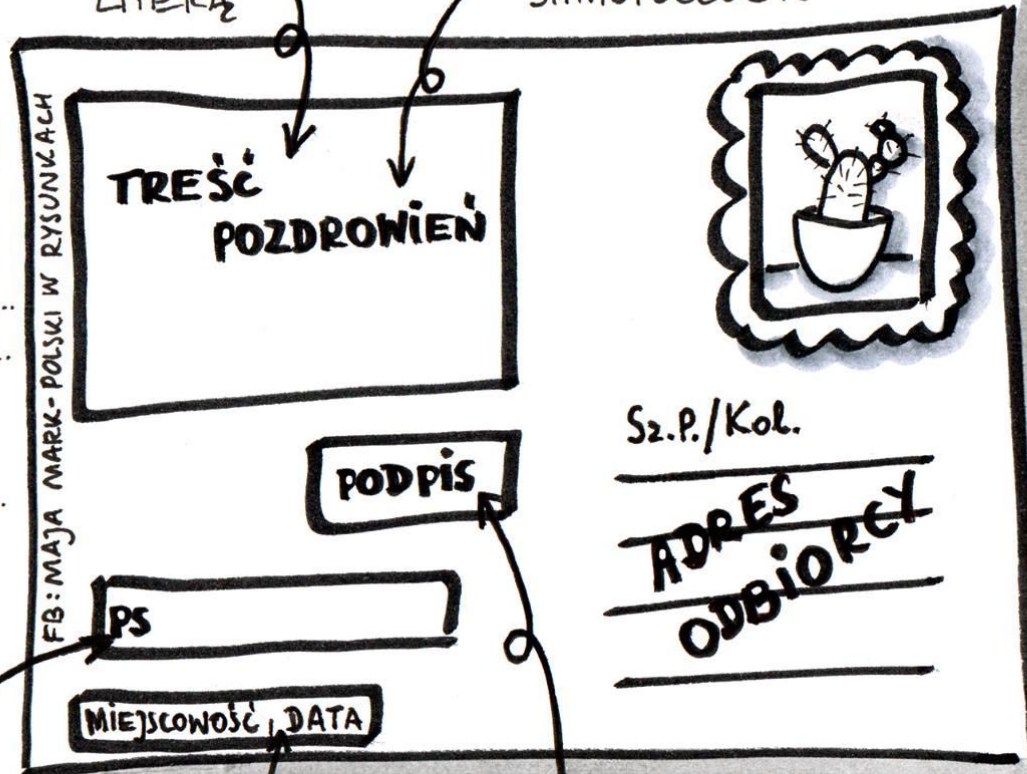 LITERĄ
FB: MAJA MARK-POLSKI W RYSUNKACH
TREŚĆ
POZDROWIEŃ
PODPIS
PS
MIEJSCOWOŚĆ, DATA
Sz.P./Kol.
ADRES
ODBIORCY